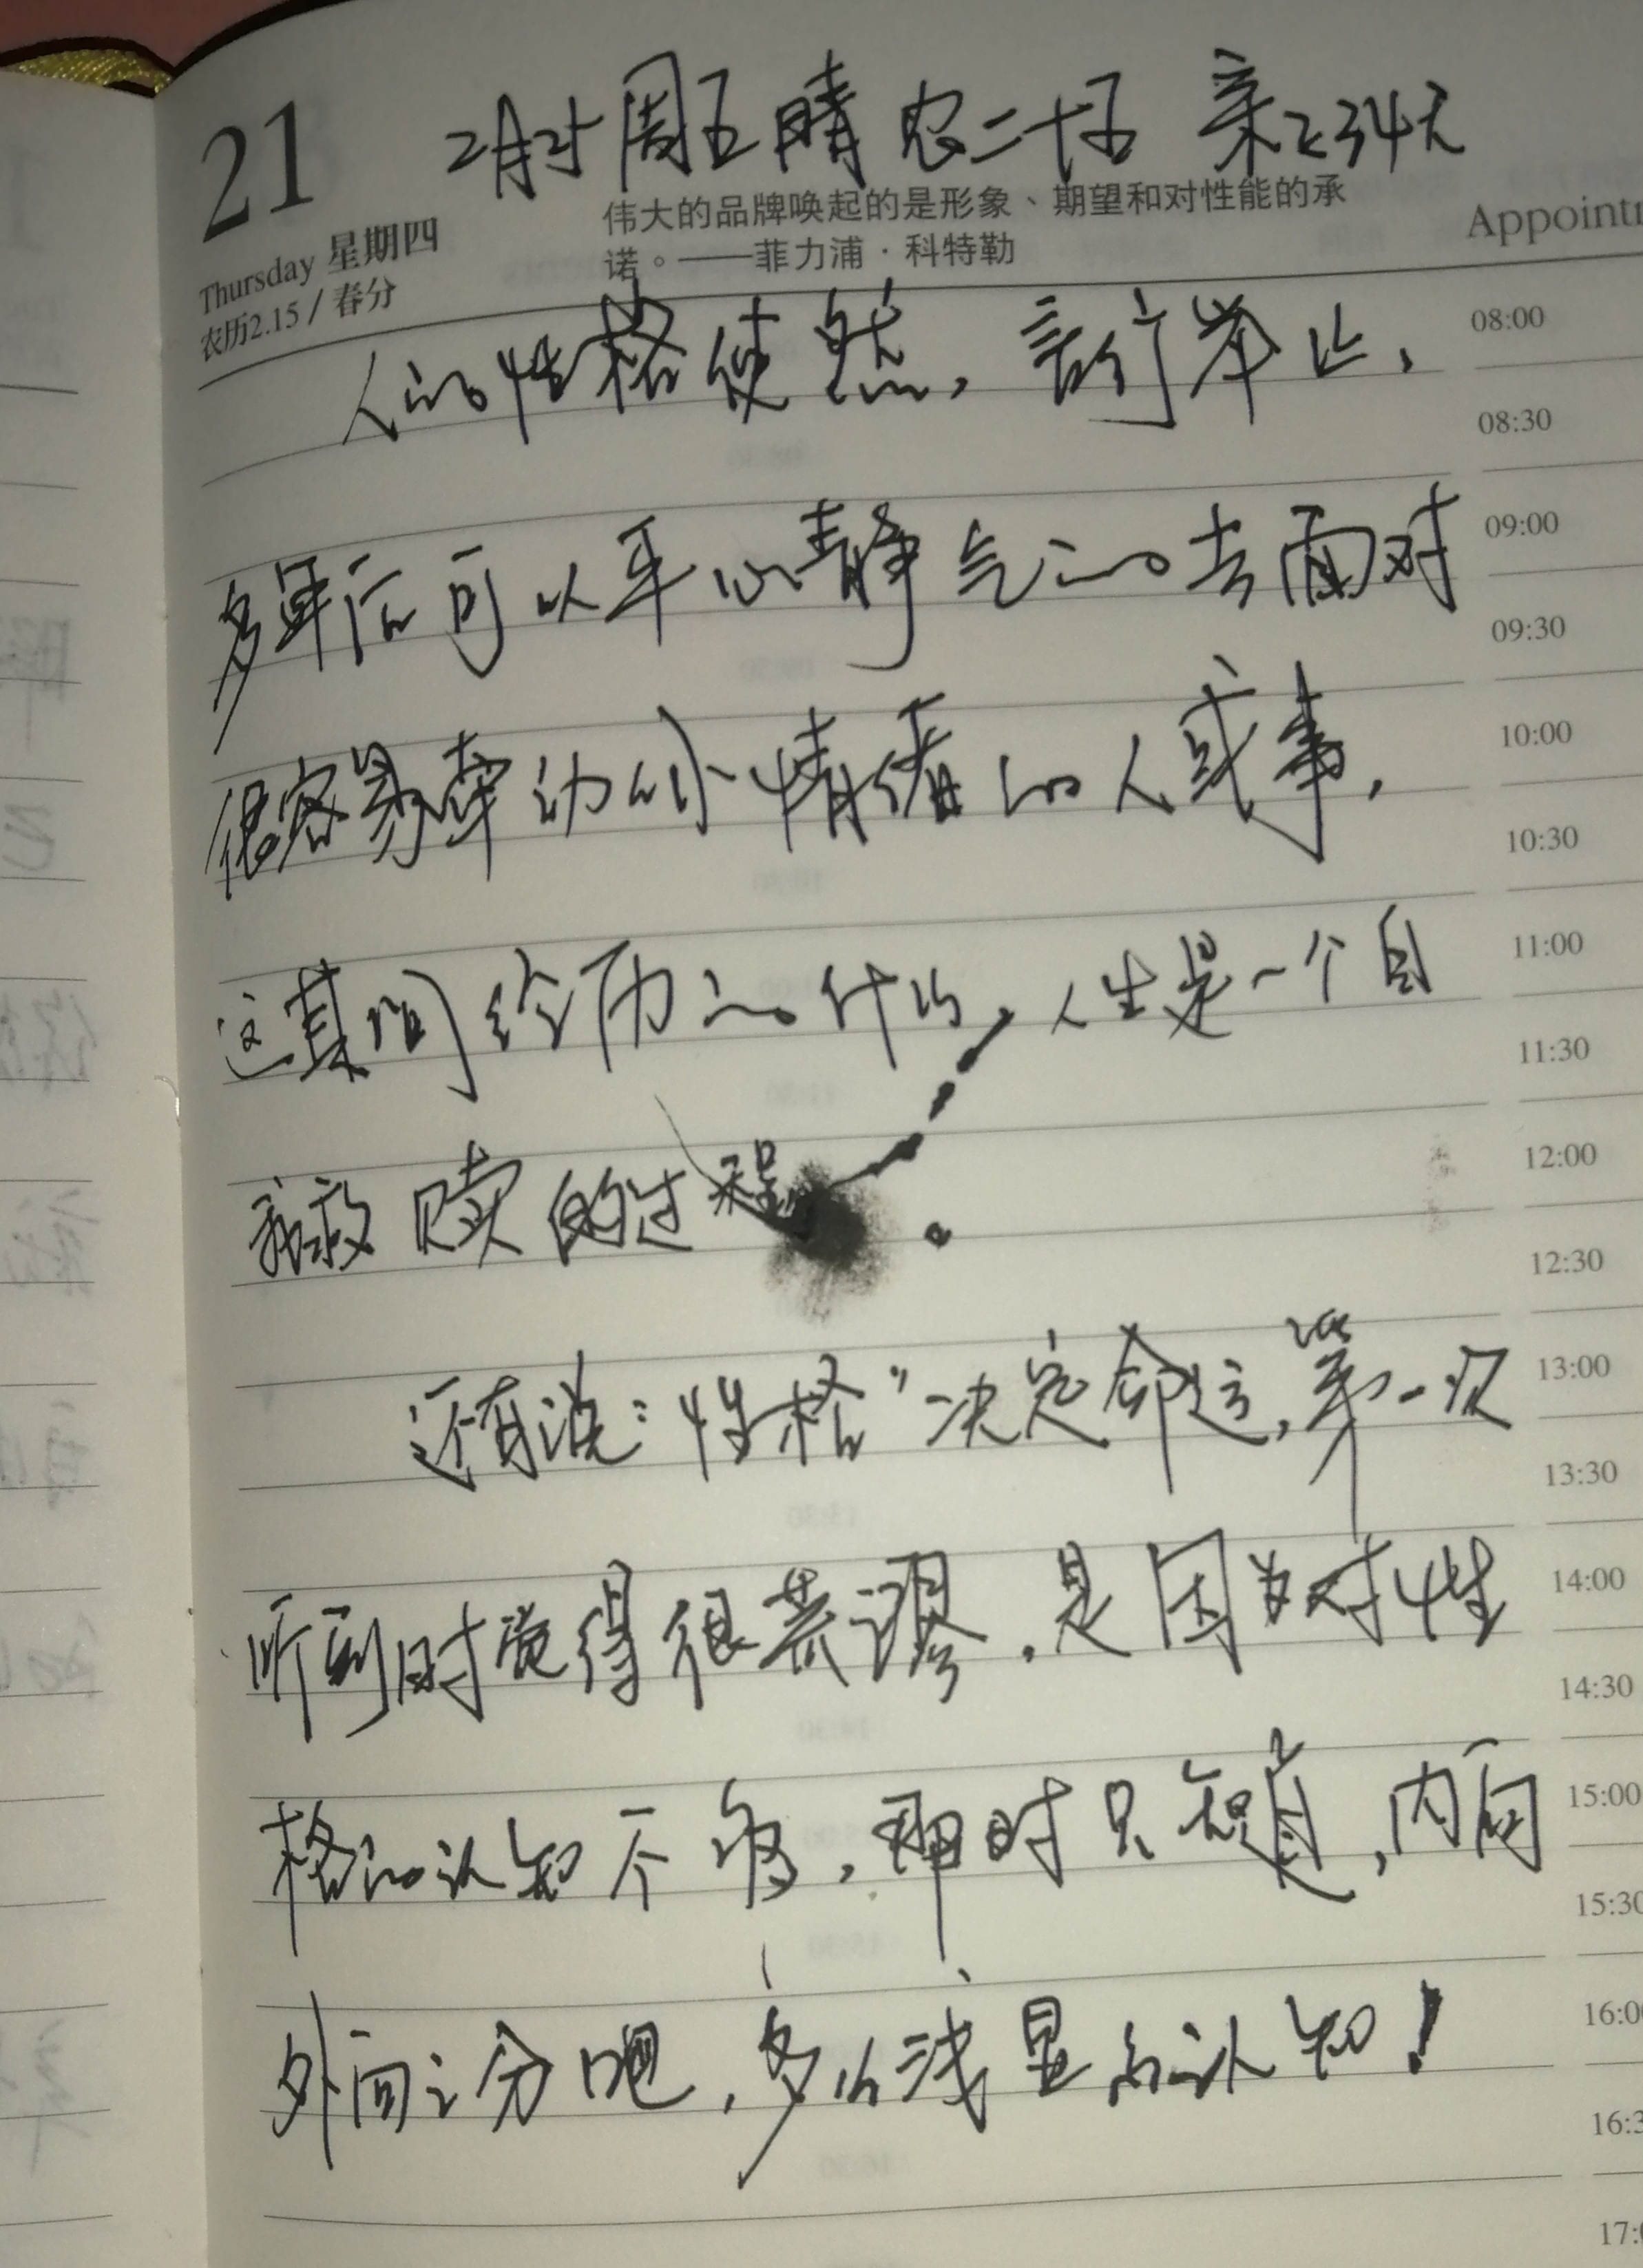 21
2月21 周五 晴 农二十五 亲234天
Thursday 星期四
农历2.15 / 春分
伟大的品牌唤起的是形象、期望和对性能的承
诺。——菲力浦·科特勒
Appoint
人的性格使然，言行举止，
08:00
08:30
多年后可以平心静气的去面对
09:00
09:30
很容易牵动小情绪的人或事，
10:00
10:30
这其间经历的什么，人生是一个自
11:00
11:30
我救赎的过程。
12:00
12:30
还有说："性格"决定命运，第一次
13:00
13:30
听到时觉得很荒谬，是因为对性
14:00
14:30
格的认知不够，那时只知道，内向
15:00
15:30
外向之分吧，多么浅显的认知！
16:0
16:3
17: